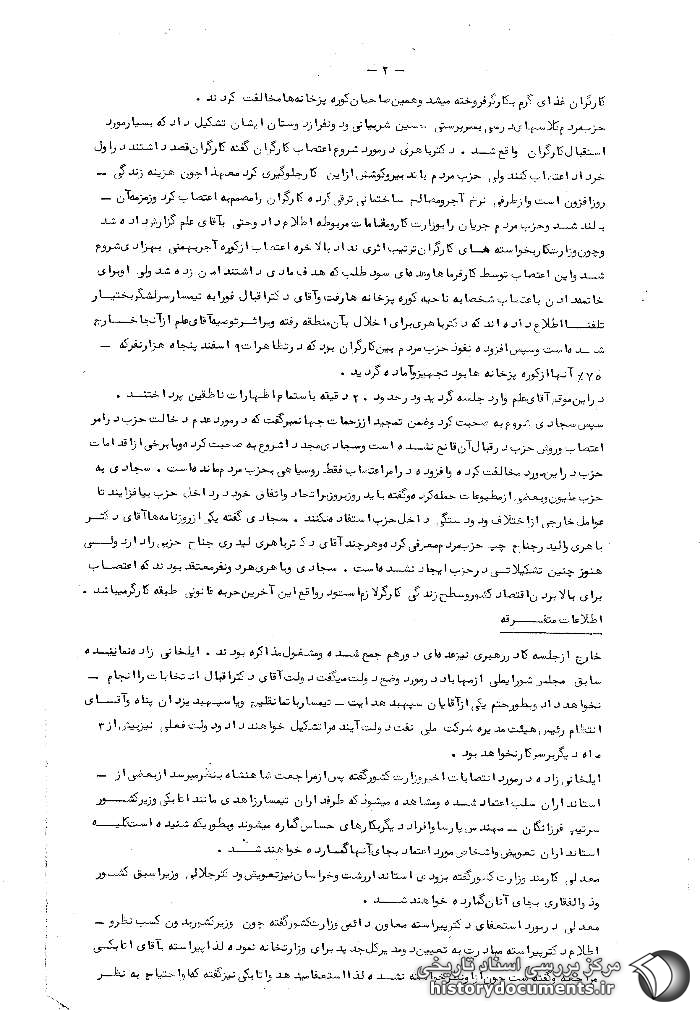 — ۲ —
کارگران غذای گرم بکارگر فروخته میشد وهمین صاحبان کوره پزخانه ها مخالفت کردند .
حزب مردم کلاسهای درسی بسرپرستی حسین شربیانی ودونفر از دوستان ایشان تشکیل داد که بسیار مورد
استقبال کارگران واقع شد . دکتر باهری در مورد شروع اعتصاب کارگران گفته کارگران قصد داشتند در اول
خرداد اعتصاب کنند ولی حزب مردم با تدبیر و کوشش از این کار جلوگیری کرد معهذا چون هزینه زندگی —
روزافزون است و از طرفی نرخ آجر ومصالح ساختمانی ترقی کرده کارگران را مصمم به اعتصاب کرد وزمزمه آن —
بلند شد وحزب مردم جریان را بوزارت کار ومقامات مربوطه اطلاع داد وحتی بآقای علم گزارش داده شد
وچون وزارتکار بخواسته های کارگران ترتیب اثری نداد بالاخره اعتصاب از کوره آجر بهمنی بهزادی شروع
شد واین اعتصاب توسط کارفرماها وعده ای سود طلب که هدف مادی داشتند دامن زده شد ولی او برای
خاتمه دادن باعتصاب شخصا به ناحیه کوره پزخانه ها رفت وآقای دکتر اقبال فورا به تیمسار سرلشگر بختیار
تلفنا اطلاع داده اند که دکتر باهری برای اخلال بآن منطقه رفته وبراثر توصیه آقای علم از آنجا خارج
شده است وسپس افزوده نفوذ حزب مردم بین کارگران بود که در تظاهرات ۹ اسفند پنجاه هزار نفر که —
۷۵٪ آنها از کوره پزخانه ها بود تجهیز و آماده گردید .
در این موقع آقای علم وارد جلسه گردید و در حدود ۲۰ دقیقه باستماع اظهارات ناطقین پرداختند .
سپس سجادی شروع به صحبت کرد وضمن تمجید از زحمات جهانمیر گفت که در مورد عدم دخالت حزب در امر
اعتصاب وروش حزب در قبال آن قانع نشده است وسجادی مجددا شروع به صحبت کرده وبا برخی از اقدامات
حزب در این مورد مخالفت کرده وافزوده در امر اعتصاب فقط روسیاهی بحزب مردم مانده است . سجادی به
حزب ملیون وبعضی از مطبوعات حمله کرده وگفته باید روزبروز بر اتحاد واتفاق خود در داخل حزب بیافزایند تا
عوامل خارجی از اختلاف ودودستگی داخل حزب استفاده نکنند . سجادی گفته یکی از روزنامه ها آقای دکتر
باهری را لیدر جناح چپ حزب مردم معرفی کرده وهرچند آقای دکتر باهری لیدری جناح حزبی را دارد ولی
هنوز چنین تشکیلاتی در حزب ایجاد نشده است . سجادی وباهری هر دو نفر معتقد بودند که اعتصاب
برای بالا بردن اقتصاد کشور وسطح زندگی کارگر لازم است ودر واقع این آخرین حربه قانونی طبقه کارگر میباشد .
اطلاعات متفرقه
خارج از جلسه کادر رهبری نیز عده ای دور هم جمع شده ومشغول مذاکره بودند . ایلخانی زاده نماینده
سابق مجلس شورایملی از مهاباد در مورد وضع دولت میگفت دولت آقای دکتر اقبال انتخابات را انجام —
نخواهد داد وبطور حتم یکی از آقایان سپهبد هدایت — تیمسار باتمانقلیچ ویا سپهبد یزدان پناه وآقای
انتظام رئیس هیئت مدیره شرکت ملی نفت دولت آینده را تشکیل خواهند داد ودولت فعلی نیز بیش از ۳
ماه دیگر بر سرکار نخواهد بود .
ایلخانی زاده در مورد انتصابات اخیر وزارت کشور گفته پس از مراجعت شاهنشاه بنظر میرسد از بعضی از —
استانداران سلب اعتماد شده ومشاهده میشود که طرفداران تیمسار زاهدی مانند اتابکی وزیر کشور
سرتیپ فرزانگان — مهندس پارسا وافراد دیگر بکارهای حساس گمارده میشوند وبطوریکه شنیده است کلیه
استانداران تعویض واشخاص مورد اعتماد بجای آنها گمارده خواهند شد .
معدلی کارمند وزارت کشور گفته بزودی استاندار رشت وخراسان نیز تعویض ودکتر جلالی وزیر اسبق کشور
وذوالفقاری بجای آنان گمارده خواهند شد .
معدلی در مورد استعفای دکتر پیراسته معاون دائمی وزارت کشور گفته چون وزیر کشور بدون کسب نظر و —
اطلاع دکتر پیراسته مبادرت به تعیین دو مدیر کل جدید برای وزارتخانه نموده لذا پیراسته به آقای اتابکی
مراجعه وگفته است چون از نشده لذا استعفا میدهد واتابکی نیز گفته که احتیاج به نظر
مرکز بررسی اسناد تاریخی
historydocuments.ir